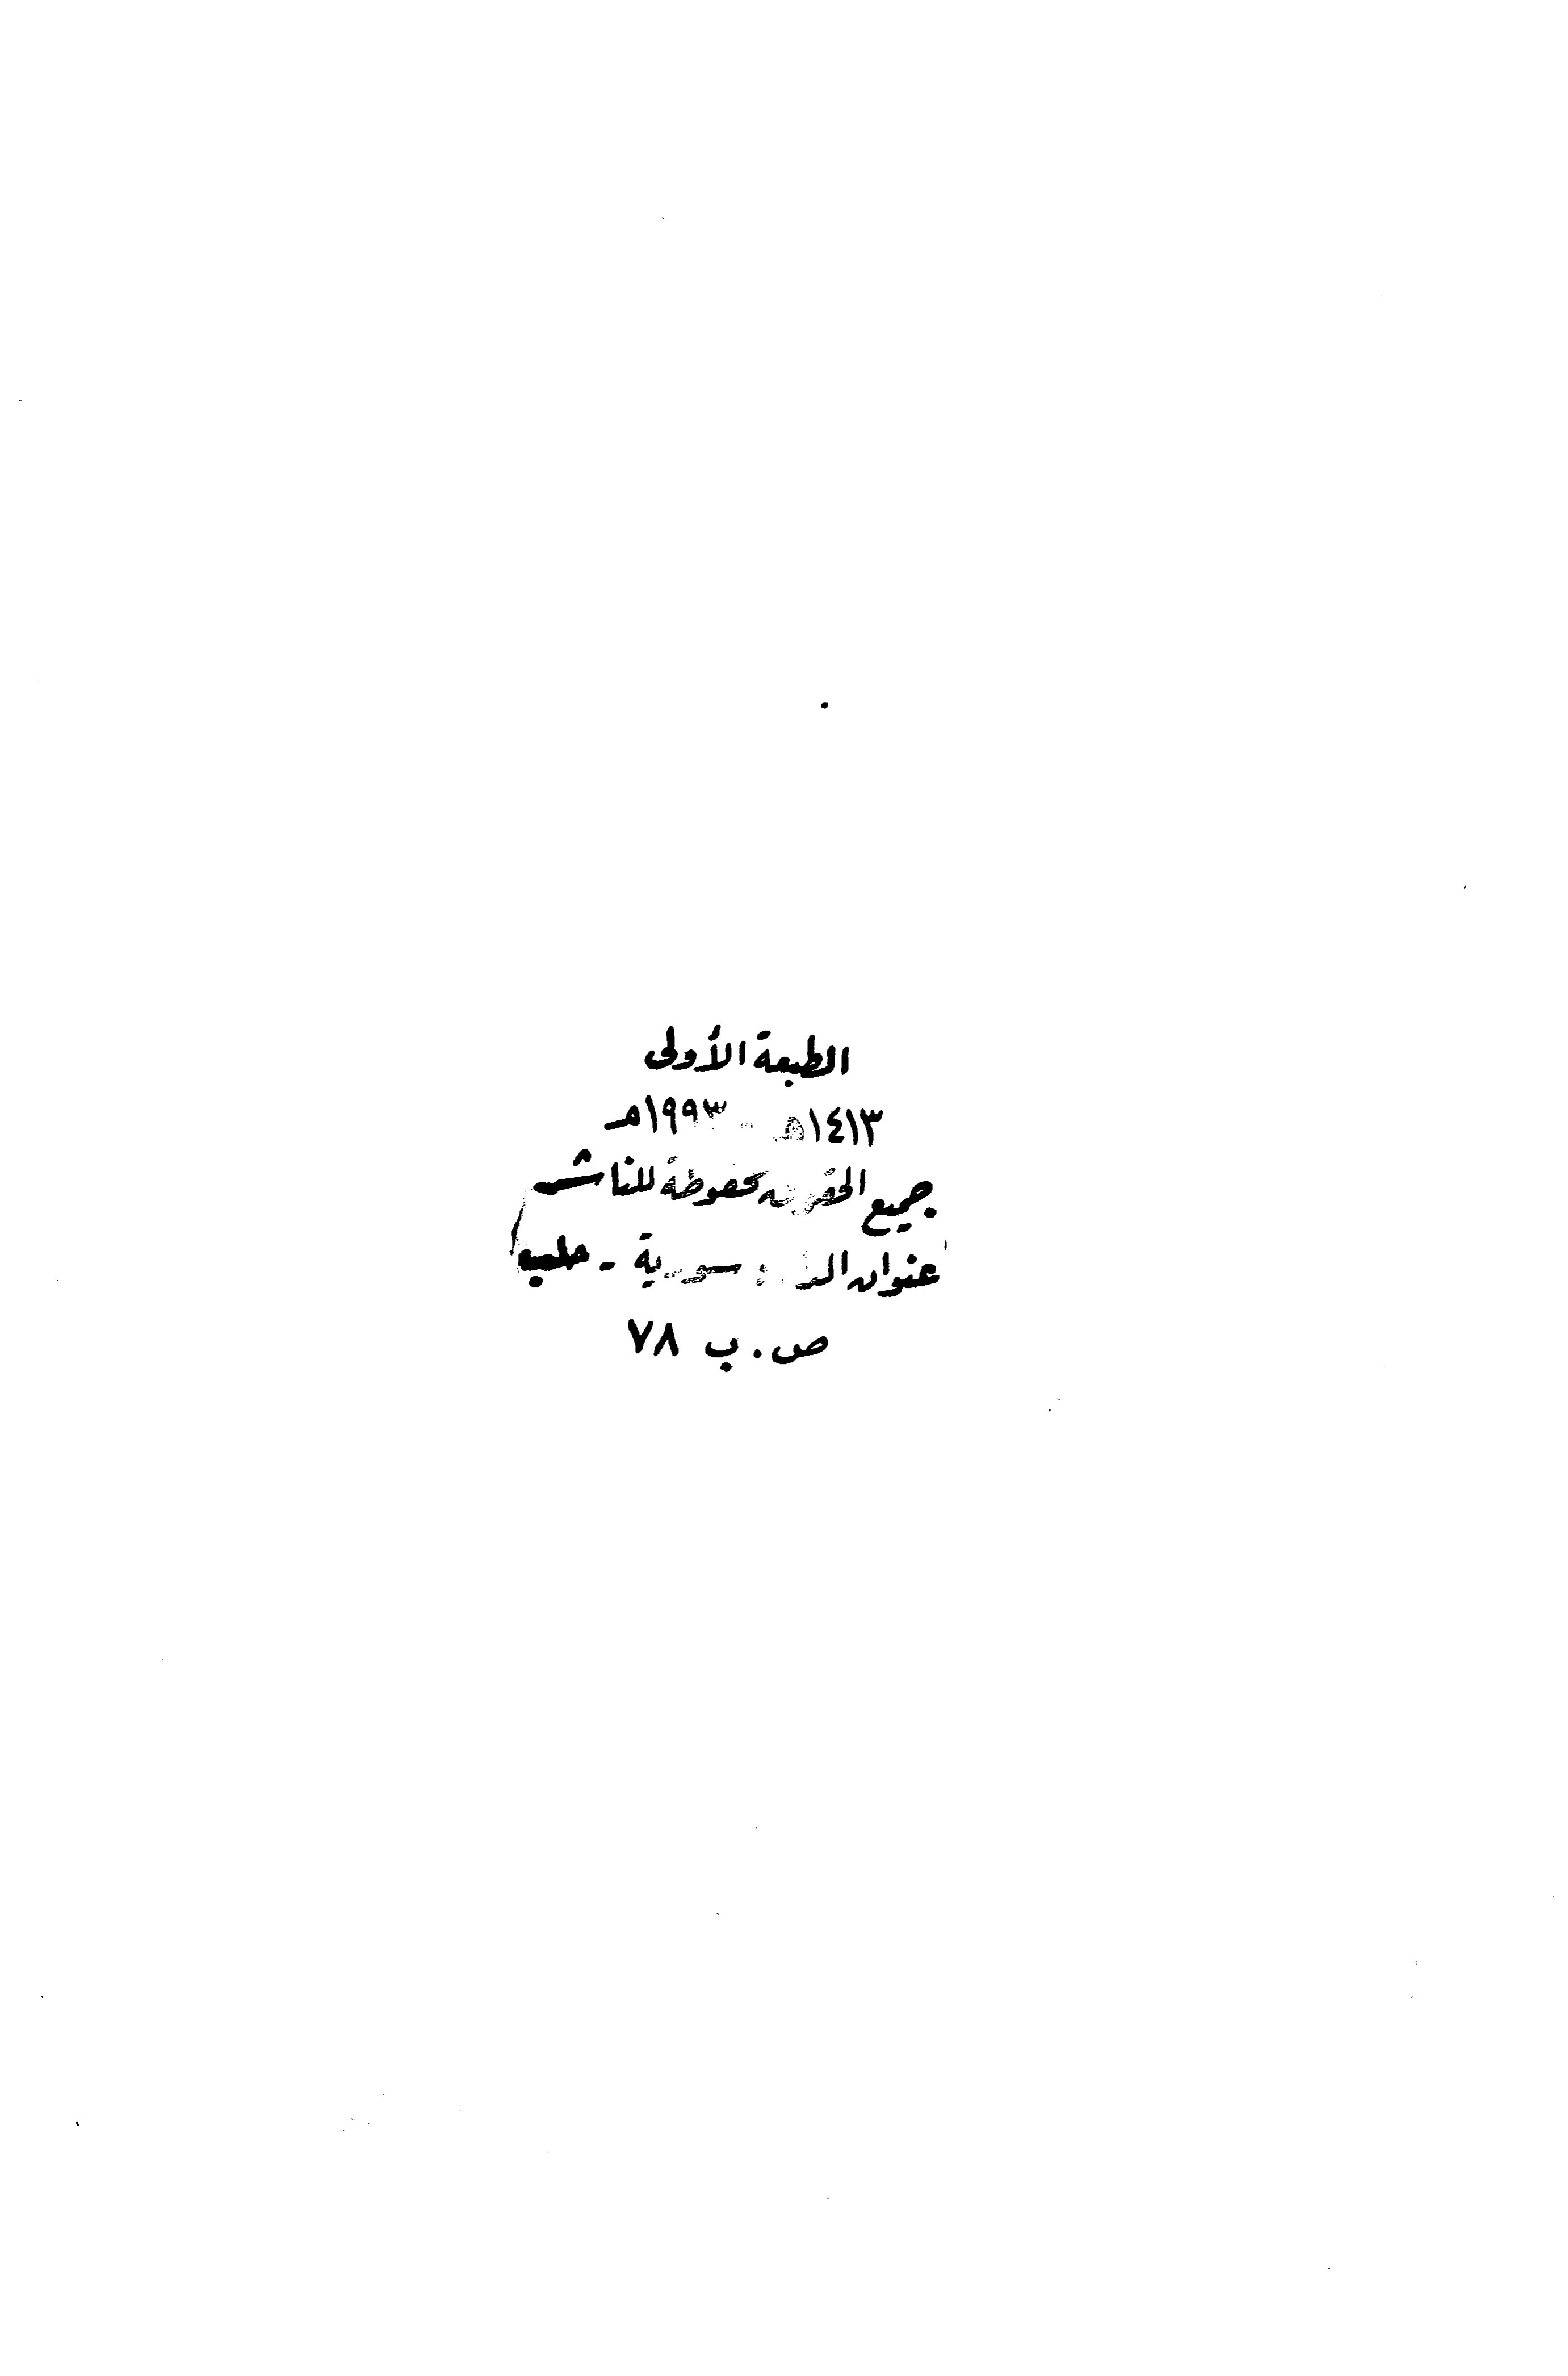 الطبعة الأولى
١٤١٣هـ - ١٩٩٣م
جميع الحقوق محفوظة للناشر
عنوان الدار : سورية - حلب
ص . ب ٧٨